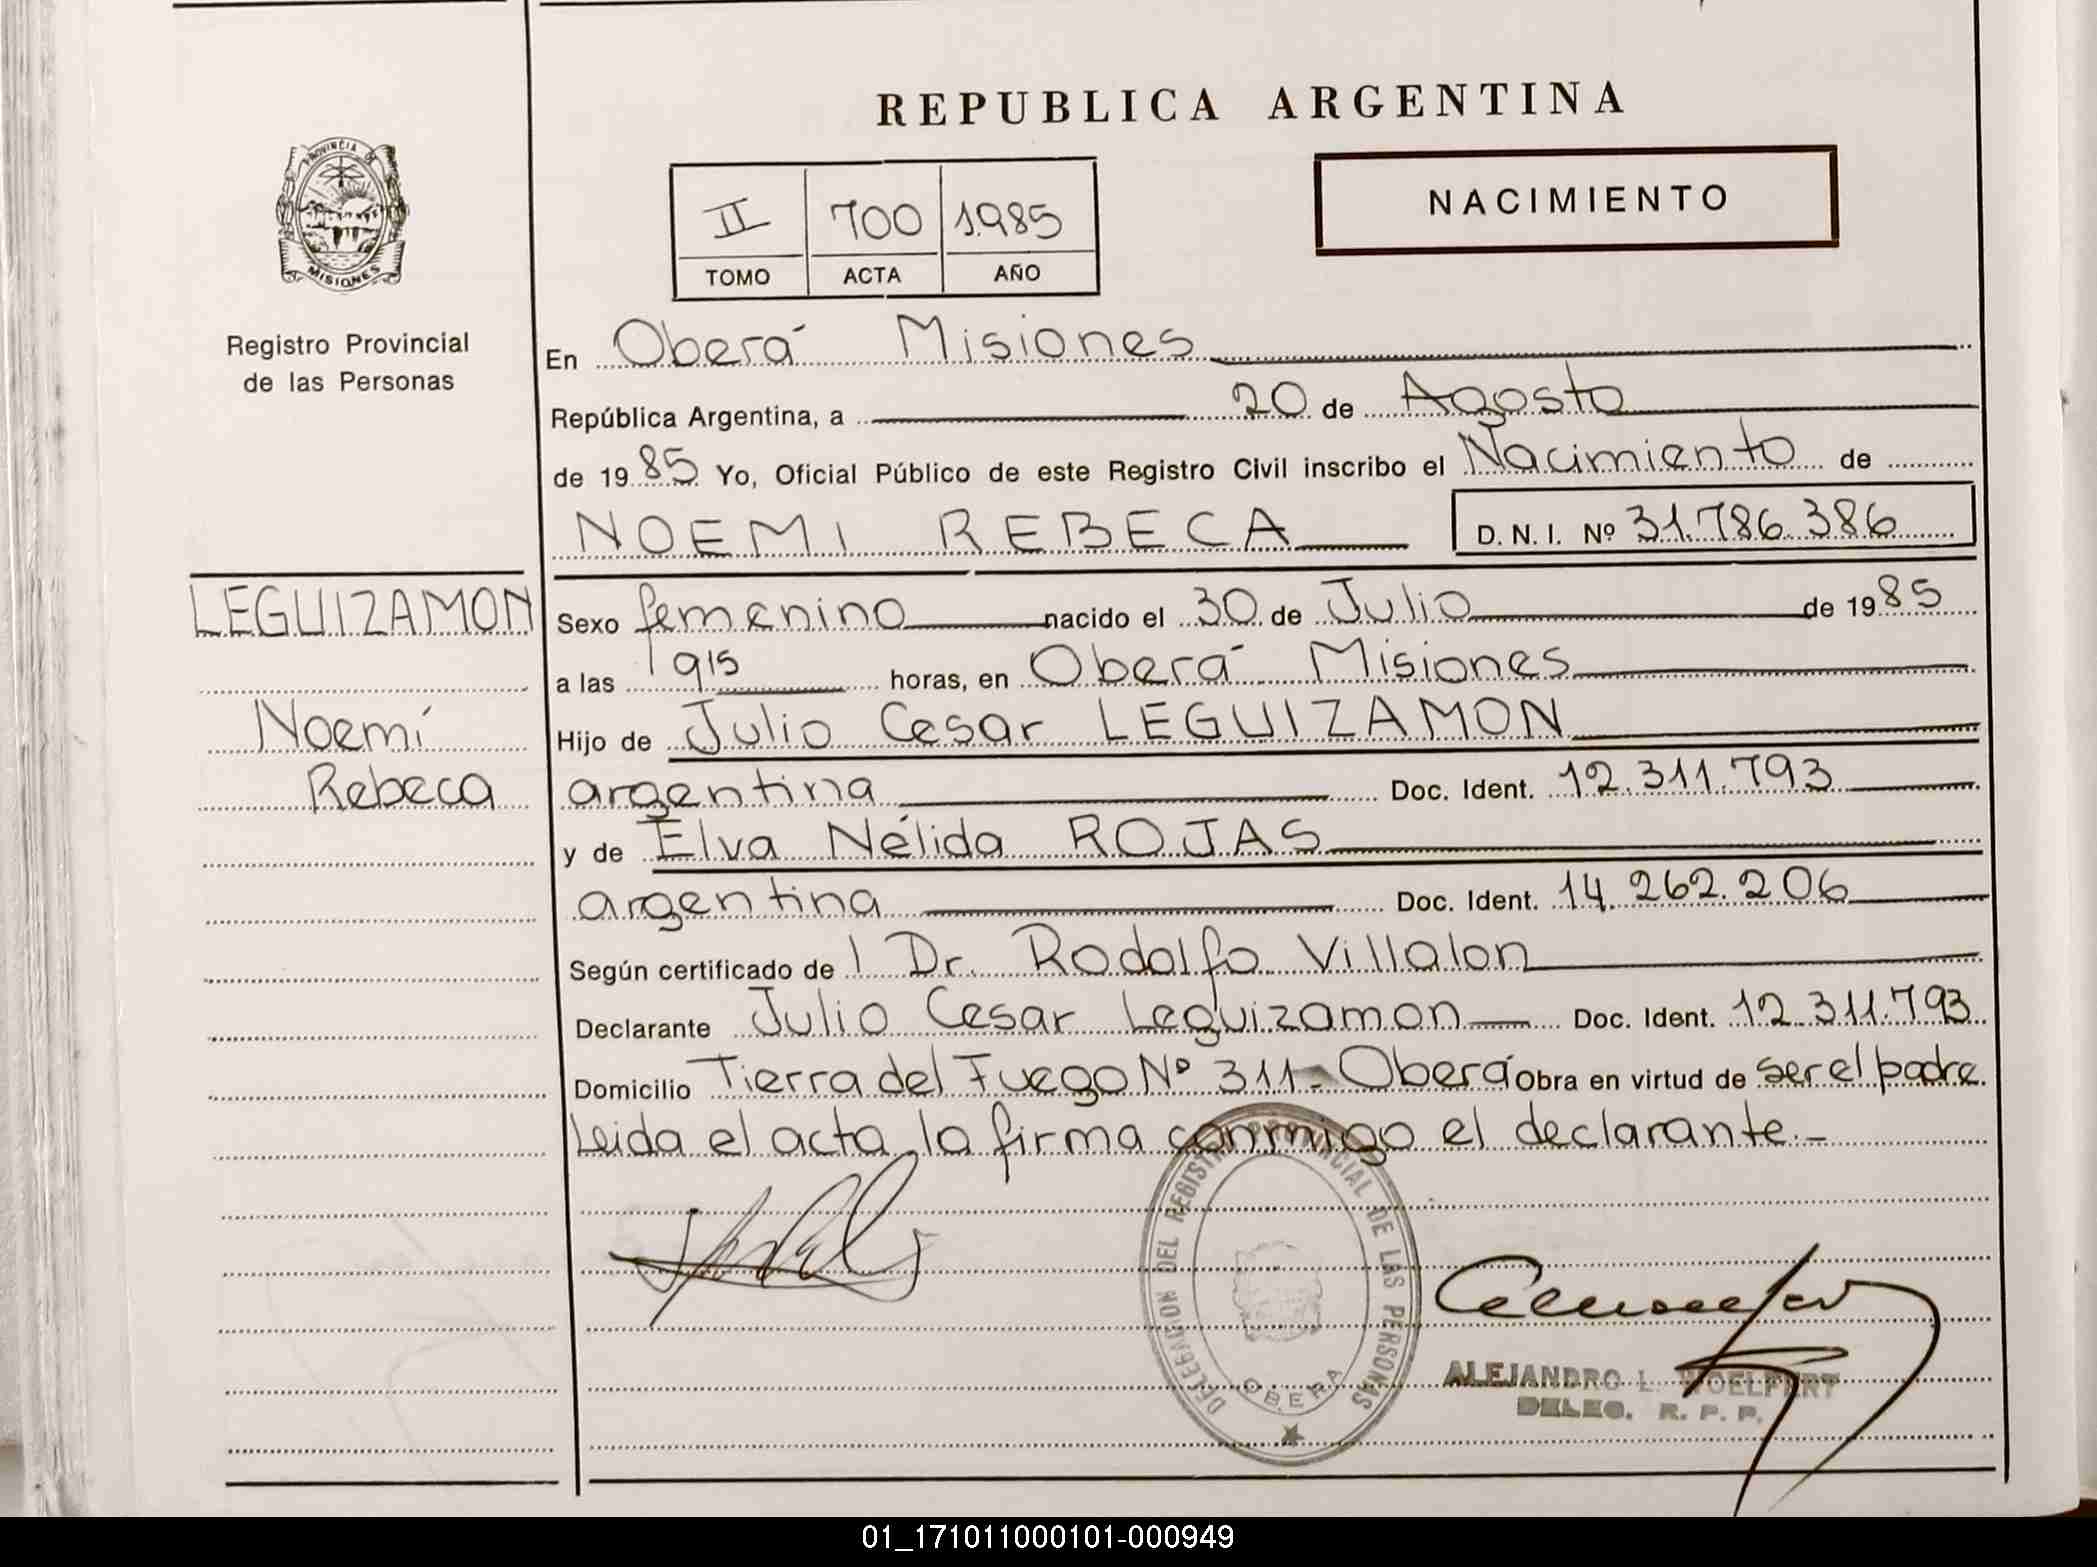 REPUBLICA ARGENTINA
PROVINCIA DE
MISIONES
Registro Provincial
de las Personas
II 700 1.985
TOMO ACTA AÑO
NACIMIENTO
En Oberá Misiones
República Argentina, a 20 de Agosto
de 1985 Yo, Oficial Público de este Registro Civil inscribo el Nacimiento de
NOEMI REBECA D. N. I. Nº 31.786.386
LEGUIZAMON
Noemí
Rebeca
Sexo femenino nacido el 30 de Julio de 1985
a las 1915 horas, en Oberá Misiones
Hijo de Julio Cesar LEGUIZAMON
argentina Doc. Ident. 12.311.793
y de Elva Nélida ROJAS
argentina Doc. Ident. 14.262.206
Según certificado de l Dr. Rodolfo Villalon
Declarante Julio Cesar Leguizamon Doc. Ident. 12.311.793
Domicilio Tierra del Fuego Nº 311- Oberá Obra en virtud de ser el padre
Leida el acta, la firma conmigo el declarante.-
DELEGACION DEL REGISTRO PROVINCIAL DE LAS PERSONAS
OBERA
ALEJANDRO L. WOELFERT
DELEG. R. P. P.
01_171011000101-000949